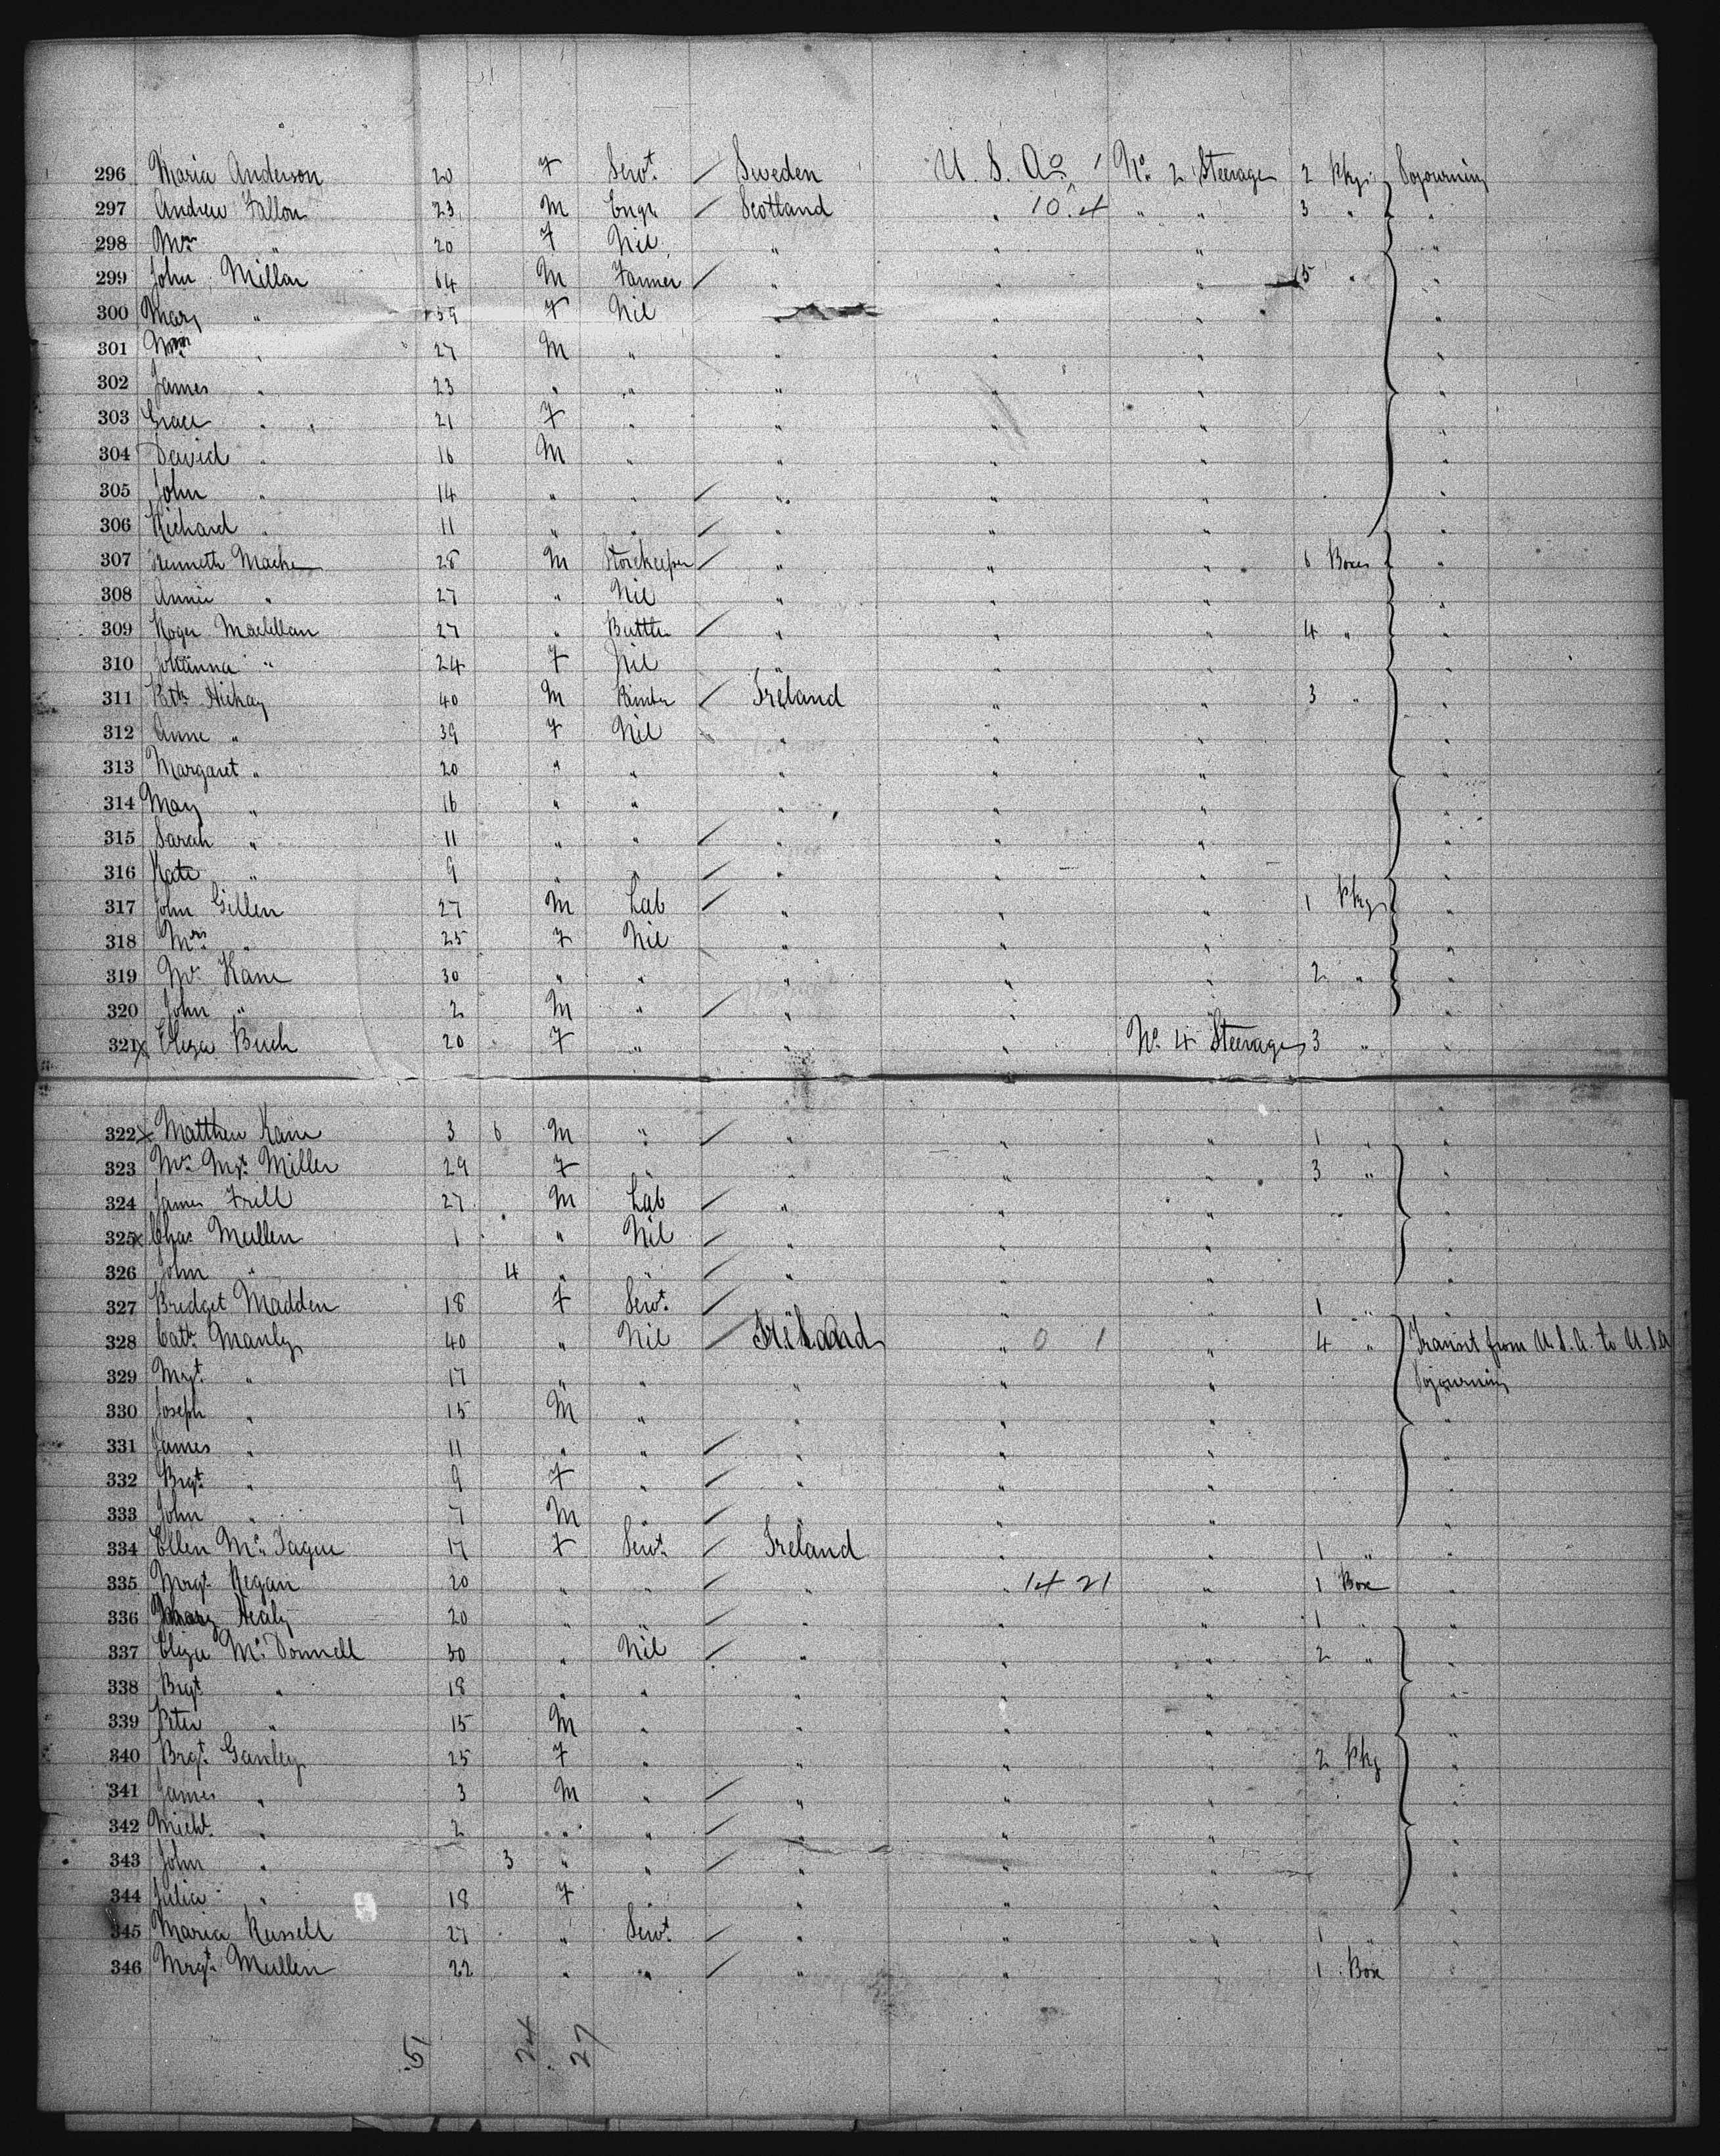 296 Maria Anderson 20 F Servt. / Sweden U. S. A. No. 2 Steerage 2 Pkgs Sojourning
297 Andrew Fallon 23 M Engr / Scotland " 10.4 " " 3 " "
298 Mrs " 20 F Nil " " " "
299 John Millar 64 M Farmer / " " " 15 " "
300 Mary " 59 F Nil " " " "
301 Wm " 27 M " " " " "
302 James " 23 " " " " " "
303 Grace " 21 F " " " " "
304 David " 16 M " " " " "
305 John " 14 " " / " " " "
306 Richard " 11 " " / " " " "
307 Kenneth 28 M Storekeeper / " " " 6 Boxes "
308 Annie " 27 " Nil " " " "
309 Roger 27 " / " " " 4 " "
310 Johanna " 24 F Nil " " " "
311 40 M / Ireland " " 3 " "
312 Anne " 39 F Nil " " " "
313 Margaret " 20 " " " " " "
314 Mary " 16 " " " " " "
315 Sarah " 11 " " / " " " "
316 Kate " 9 " " / " " " "
317 John Gillen 27 M Lab / " " " 1 Pkgs "
318 Mrs " 25 F Nil " " " "
319 Kane 30 " " " " " 2 " "
320 John " 2 M " / " " " "
321 x Eliza 20 F " " " No. 4 Steerage 3 " "
322 x Matthew Kane 3 6 M " / " " " 1 " "
323 Mrs Mgt. Miller 29 F " " " " 3 " "
324 James 27 M Lab / " " " " "
325 x Chas Mullen 1 " Nil / " " " "
326 John " 4 " " / " " " "
327 Bridget Madden 18 F Servt. / " " " 1 " "
328 Cath Manly 40 " Nil / Ireland " 0 1 " 4 " Transit from U.S.A. to U.S.A
329 Mgt. " 17 " " " " " Sojourning
330 Joseph " 15 M " " " " "
331 James " 11 " " / " " " "
332 Brgt. " 9 F " / " " " "
333 John " 7 M " / " " " "
334 Ellen 17 F Servt. / Ireland " " 1 " "
335 Mrgt. Regan 20 " " / " " 14 21 " 1 Box "
336 Mary Healy 20 " " / " " " 1 " "
337 Eliza McDonnell 50 " Nil / " " " 2 " "
338 Brgt " 18 " " " " " "
339 Peter " 15 M " " " " "
340 Brgt. Ganley 25 F " " " " 2 Pkg "
341 James " 3 M " / " " " "
342 Michl. " 2 " " / " " " "
343 John " 3 " " / " " " "
344 Julia " 18 F " " " " "
345 Maria Russell 27 " Servt. / " " " 1 " "
346 Mrgt. Mullen 22 " " / " " " 1 Box "
51 24 27